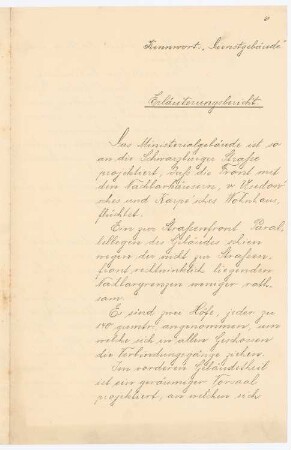 Kennwort: "Dienstgebäude"
Erläuterungsbericht.
Das Ministerialgebäude ist so
an die Schwarzburger Straße
projektiert, daß die Front mit
den Nachbarhäusern,
sches und Wohnhaus,
fluchtet.
Ein zur Straßenfront Paral-
lellegen des Gebäudes schien
wegen der nicht zur Straßen-
front rechtwinklig liegenden
Nachbargrenzen weniger rath-
sam.
Es sind zwei Höfe, jeder zu
qumtr. angenommen, um
welche sich in allen Geschossen
die Verbindungsgänge ziehen.
Im vorderen Gebäudetheil
ist ein geräumiger Vorsaal
projektiert, an welchen sich